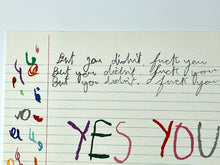 But you didn't fuck you
But you didn't. fuck you
But you didn't. fuck you
YES YOU